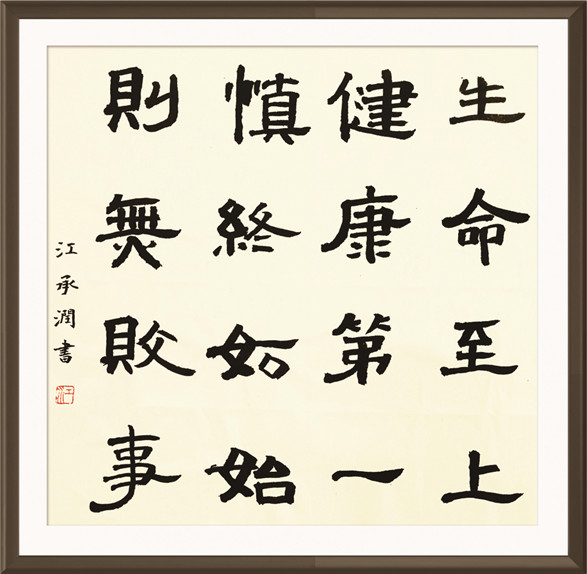 生命至上
健康第一
慎終如始
則無敗事
江承潤書
江